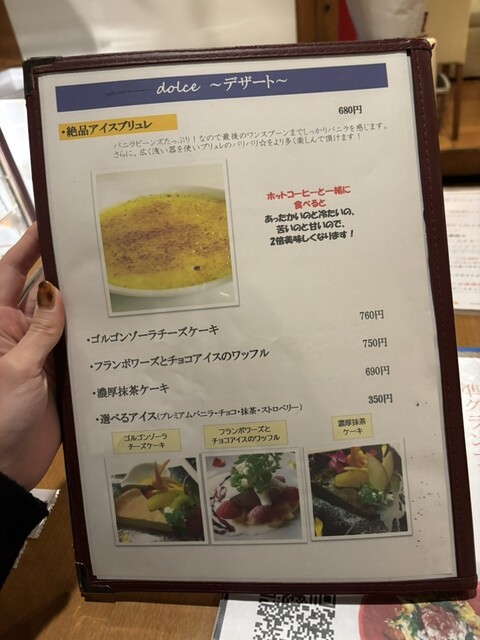 dolce ～デザート～
・絶品アイスブリュレ 680円
バニラビーンズたっぷり！なので最後のワンスプーンまでしっかりバニラを感じます。
さらに、広く浅い器を使いブリュレのパリパリ☆をより多く楽しんで頂けます！
ホットコーヒーと一緒に
食べると
あったかいのと冷たいの、
苦いのと甘いので、
2倍美味しくなります！
・ゴルゴンゾーラチーズケーキ 760円
・フランボワーズとチョコアイスのワッフル 750円
・濃厚抹茶ケーキ 690円
・選べるアイス(プレミアムバニラ・チョコ・抹茶・ストロベリー) 350円
ゴルゴンゾーラ
チーズケーキ
フランボワーズと
チョコアイスのワッフル
濃厚抹茶
ケーキ